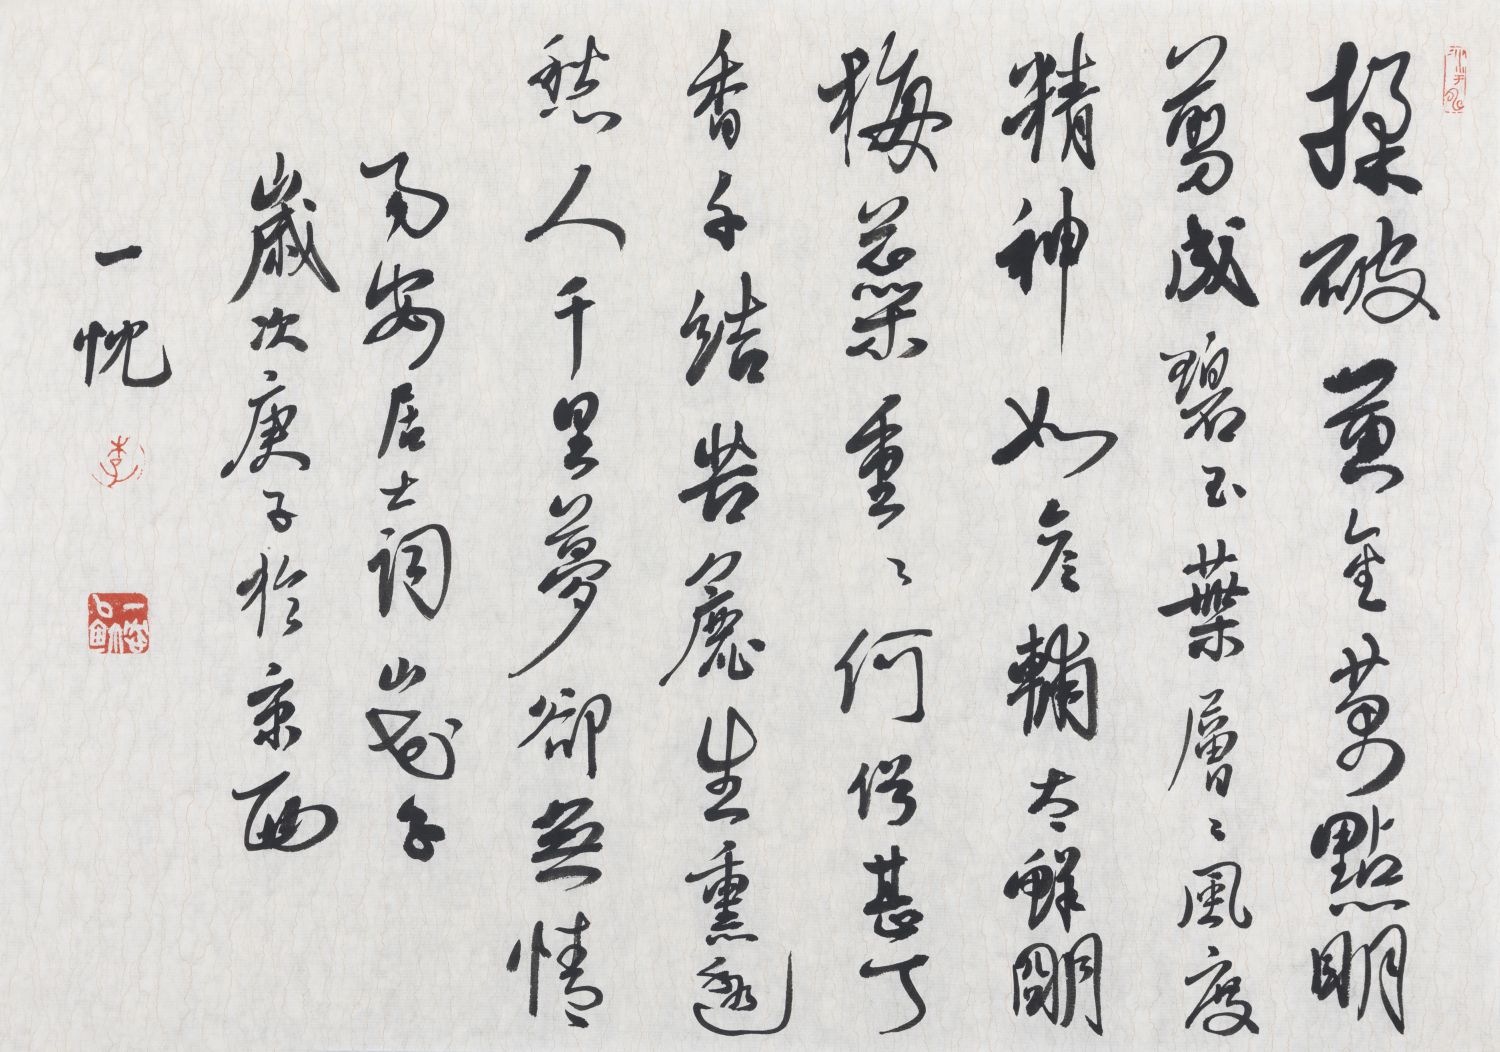 揉破黃金萬點明
剪成碧玉葉層々風度
精神如彥輔太鮮朙
梅蕊重々何俗甚丁
香千結苦麤生熏透
愁人千里夢卻無情
易安居士詞山花子
歲次庚子於京西
一忱
李